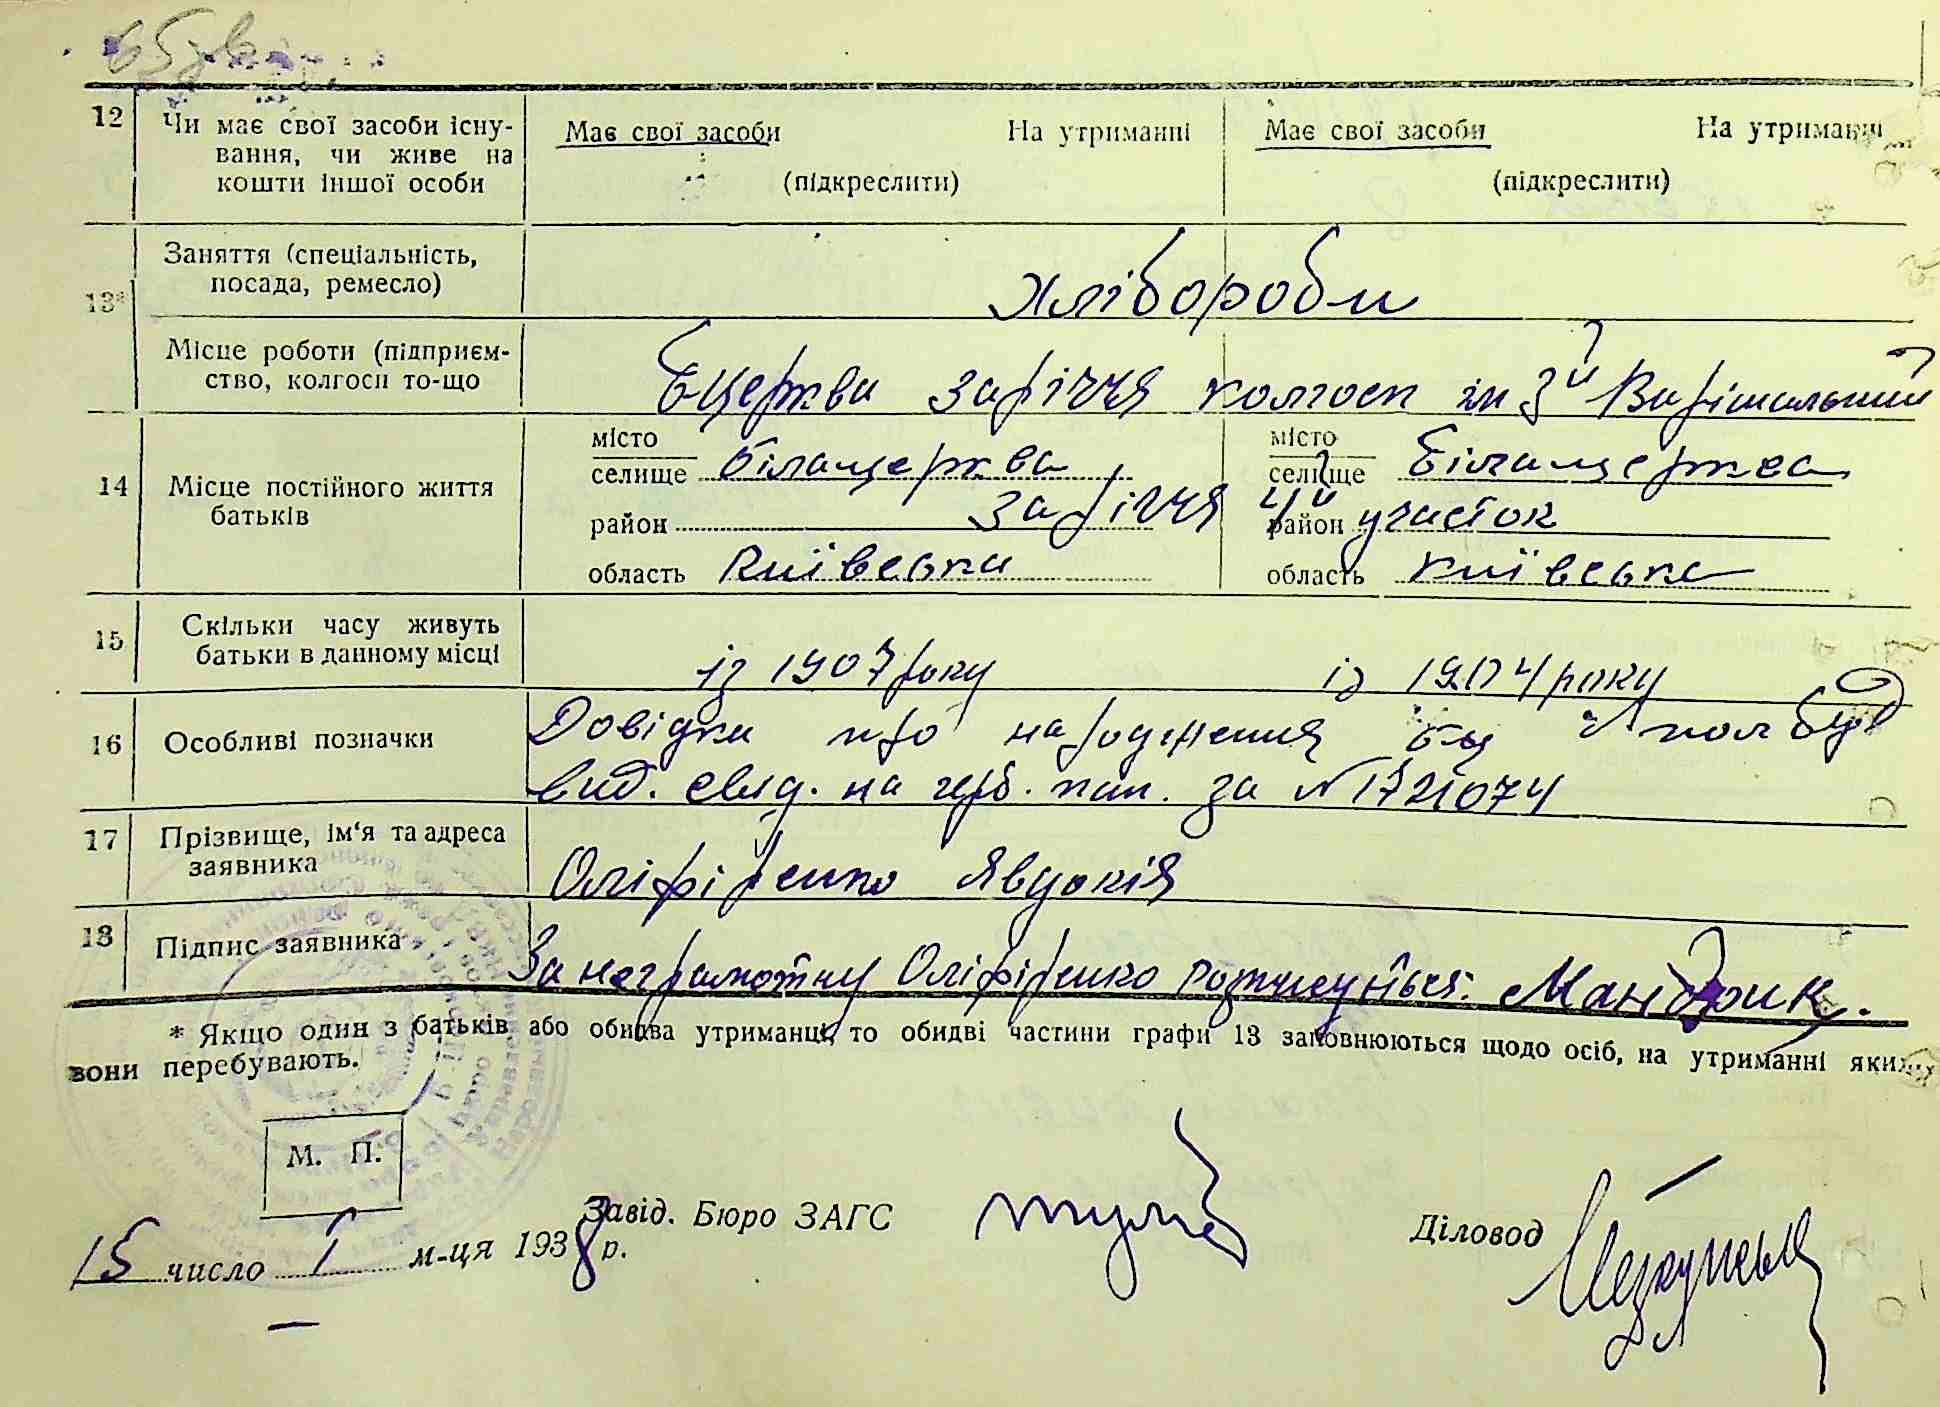 12 Чи має свої засоби існу-
вання, чи живе на
кошти іншої особи
Має свої засоби На утриманні
(підкреслити)
Має свої засоби На утриманні
(підкреслити)
13* Заняття (спеціальність,
посада, ремесло)
хлібороби
Місце роботи (підприєм-
ство, колгосп то-що
Бцерква Заріччя колгосп ім 3й Вирішальний
14 Місце постійного життя
батьків
місто
селище Білацерква
район Заріччя
область Київська
місто
селище Білацерква
район 4й участок
область Київська
15 Скільки часу живуть
батьки в данному місці
із 1907 року із 1904 року
16 Особливі позначки
Довідка про народження
вид. свід. на герб. пап. за № 1721074
17 Прізвище, ім'я та адреса
заявника
Оліфіренко Явдокія
18 Підпис заявника
За неграмотну Оліфіренко розписуеться. Мандрик.
* Якщо один з батьків або обидва утриманці, то обидві частини графи 13 заповнюються щодо осіб, на утриманні яких
вони перебувають.
М. П.
15 число I м-ця 1938 р.
Завід. Бюро ЗАГС
Діловод